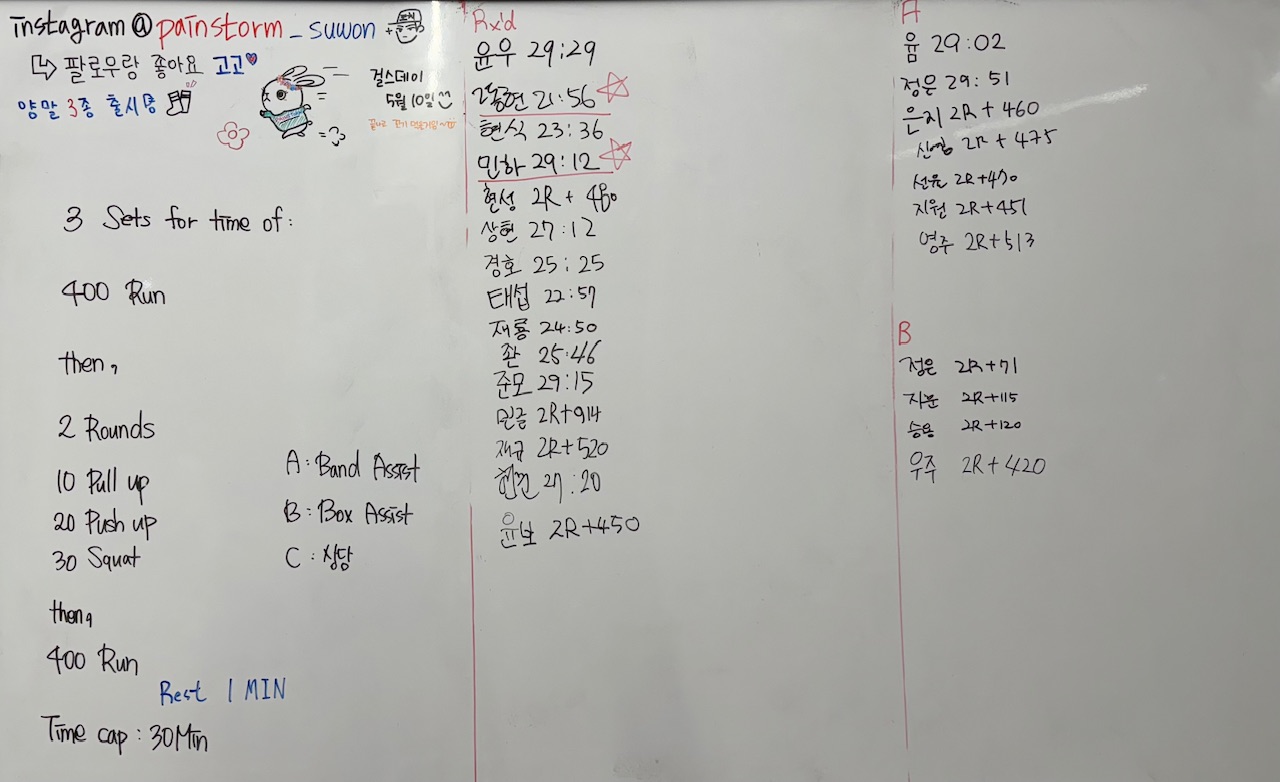 instagram @ painstorm_suwon +
↳ 팔로우랑 좋아요 고고♥
양말 3종 출시중
걸스데이
5월 10일
3 Sets for time of:
400 Run
then,
2 Rounds
10 Pull up
20 Push up
30 Squat
A: Band Assist
B: Box Assist
C: 상담
then,
400 Run
Rest 1 MIN
Time cap: 30Min
Rx'd
윤우 29:29
21:56
현식 23:36
민하 29:12
현성 2R + 480
상현 27:12
경호 25:25
태섭 22:57
재룡 24:50
좐 25:46
준모 29:15
2R+914
재규 2R+520
27:20
윤보 2R+450
A
윰 29:02
정은 29:51
은지 2R + 460
2R + 475
선윤 2R+470
지원 2R+451
영주 2R+513
B
정은 2R+71
지문 2R+115
승용 2R+120
우주 2R+420